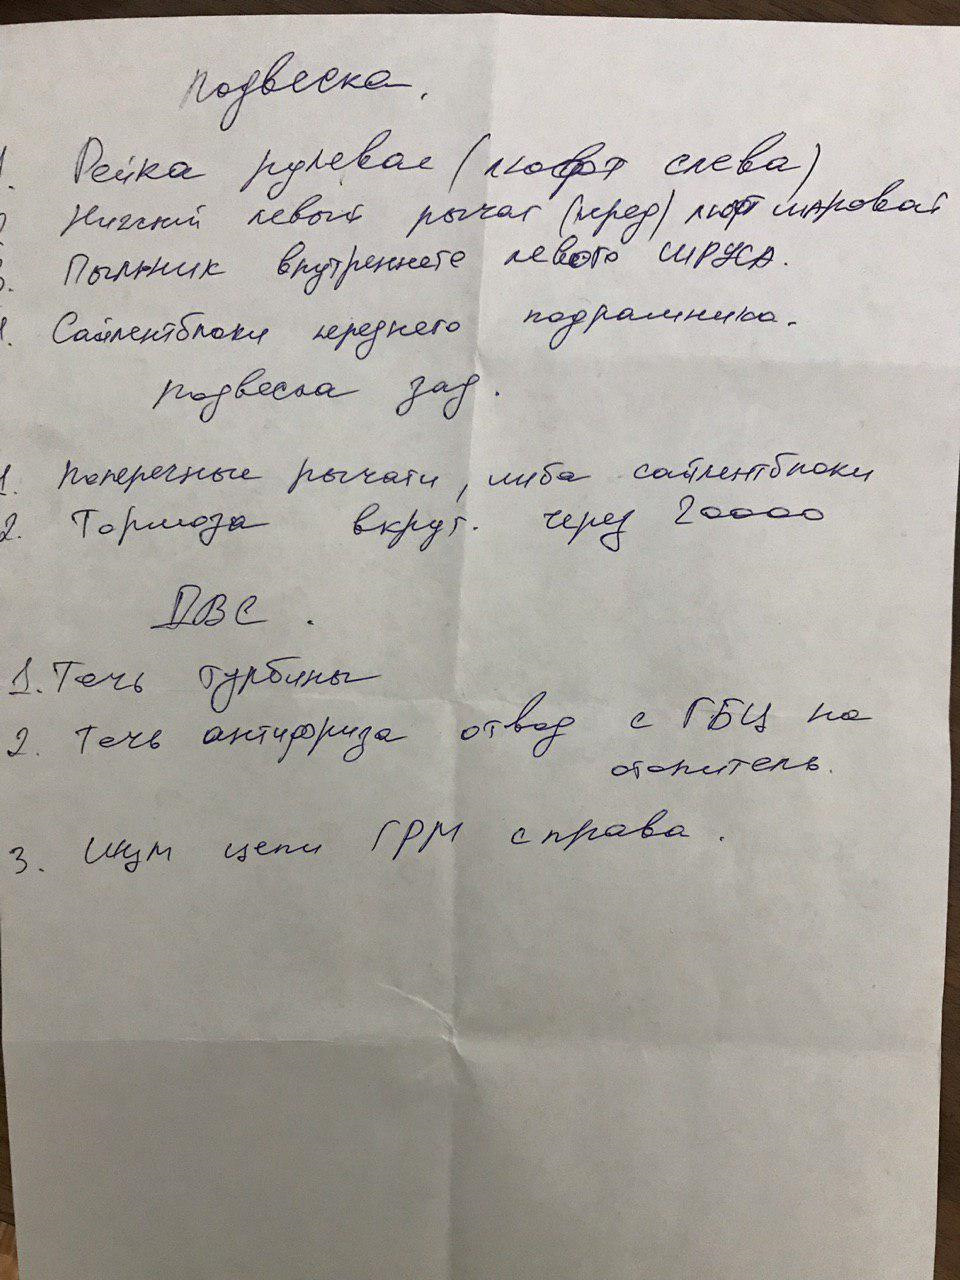 Подвеска.
1. Рейка рулевая (люфт слева)
2. Нижний левый рычаг (перед) люфт шаровой
3. Пыльник внутреннего левого ШРУСА.
4. Сайлентблоки переднего подрамника.
Подвеска зад.
1. Поперечные рычаги, либа сайлентблоки
2. Тормоза вкруг. через 20000
ДВС.
1. Течь турбины
2. Течь антифриза отвод с ГБЦ на
отопитель.
3. Шум цепи ГРМ справа.